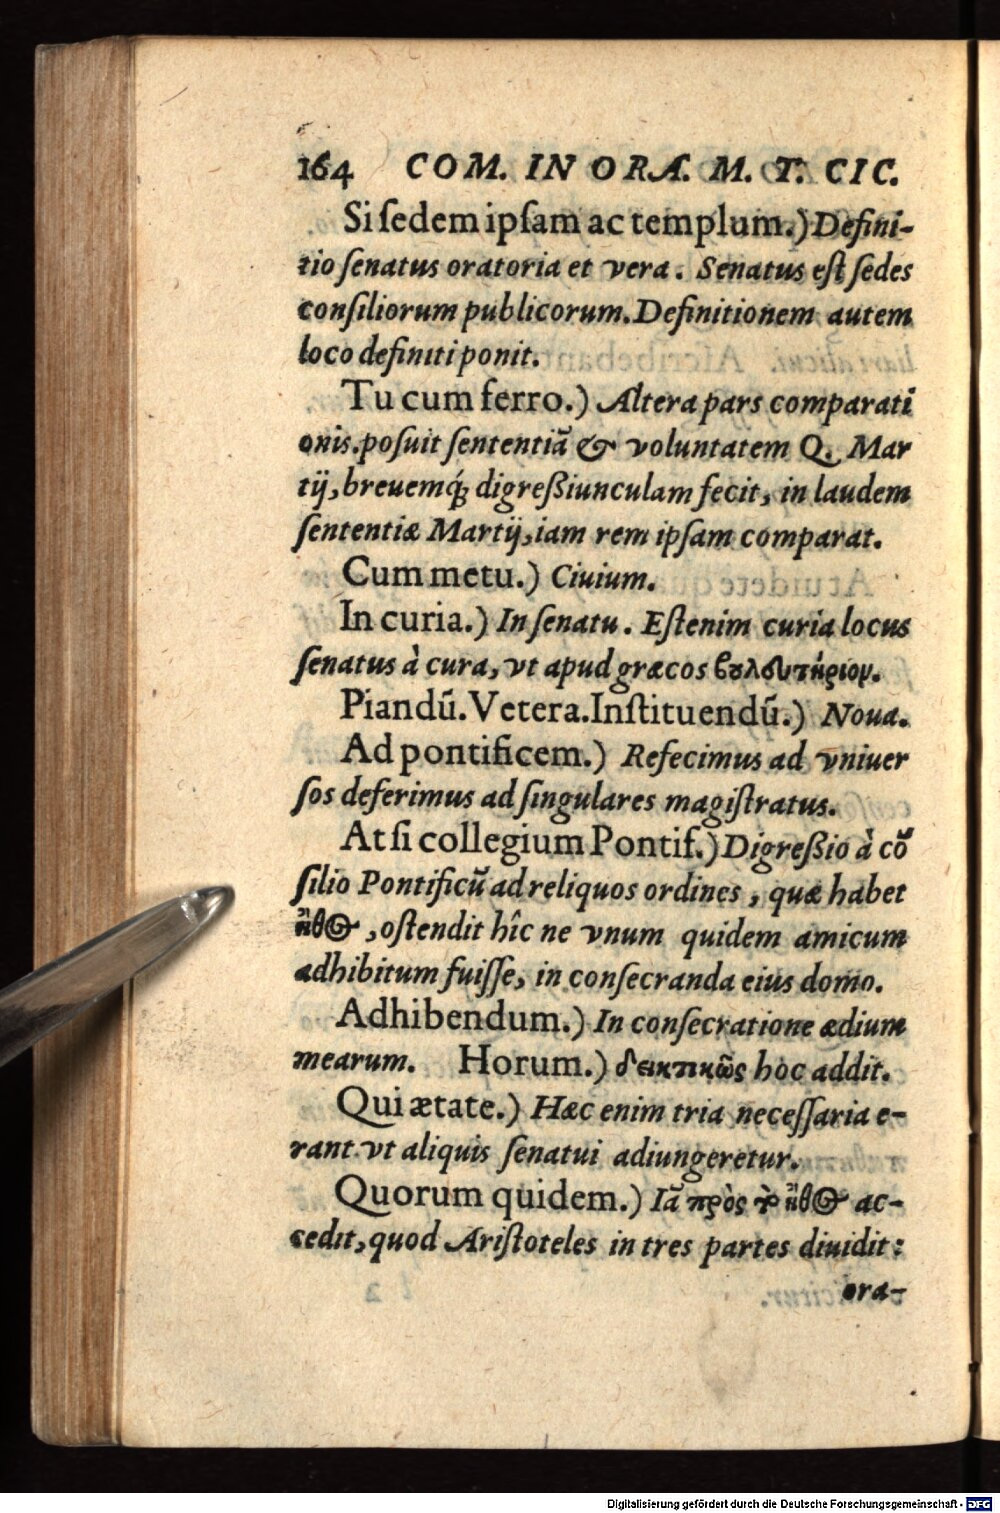 164 COM. IN ORA. M. T. CIC.
Si ſedem ipſam ac templum.) Defini-
tio ſenatus oratoria et vera. Senatus eſt ſedes
conſiliorum publicorum. Definitionem autem
loco definiti ponit.
Tu cum ferro.) Altera pars comparati
onis. poſuit ſententiā & voluntatem Q. Mar
tij, breuemq́; digreßiunculam fecit, in laudem
ſententiæ Martij, iam rem ipſam comparat.
Cum metu.) Ciuium.
In curia.) In ſenatu. Eſt enim curia locus
ſenatus à cura, vt apud græcos βουλευτήριον.
Piandū. Vetera. Inſtituendū.) Noua.
Ad pontificem.) Refecimus ad vniuer
ſos deferimus ad ſingulares magiſtratus.
At ſi collegium Pontif.) Digreßio à cō
ſilio Pontificū ad reliquos ordines, quæ habet
ἦθος, oſtendit hîc ne vnum quidem amicum
adhibitum fuiſſe, in conſecranda eius domo.
Adhibendum.) In conſecratione ædium
mearum. Horum.) δεικτικῶς hoc addit.
Qui ætate.) Hæc enim tria neceſſaria e-
rant vt aliquis ſenatui adiungeretur.
Quorum quidem.) Iā πρὸς τὸ ἦθος ac-
cedit, quod Ariſtoteles in tres partes diuidit:
ora-
Digitalisierung gefördert durch die Deutsche Forschungsgemeinschaft - DFG